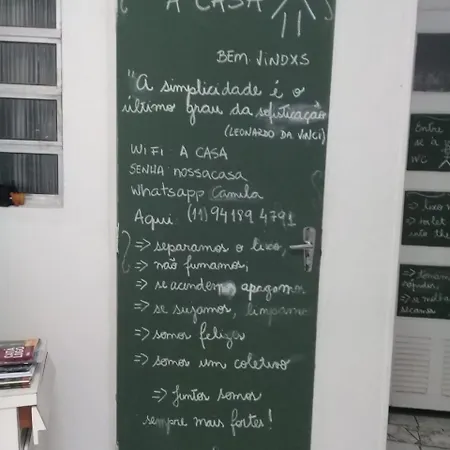 A CASA
BEM VINDXS
"A simplicidade é o
último grau da sofisticação
(LEONARDO DA VINCI)
WIFI A CASA
SENHA nossacasa
Whatsapp Camila
Aqui (11) 94189 4791
⇒ separamos o lixo,
⇒ não fumamos,
⇒ se acendemo apagamos
⇒ se sujamos, limpamos
⇒ somos felizes
⇒ somos um coletivo
⇒ Juntos somos
sempre mais fortes!
Entre
se à
WC
⇒ lixo n
⇒ toilet
into the